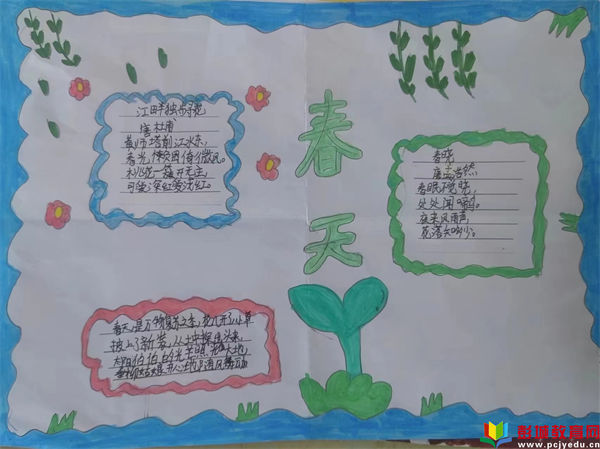 春天
江畔独步寻花
唐杜甫
黄师塔前江水东,
春光懒困倚微风。
桃花一簇开无主,
可爱深红爱浅红。
春晓
唐孟浩然
春眠不觉晓,
处处闻啼鸟。
夜来风雨声
花落知多少。
春天,是万物复苏之季,花儿开了,小草
披上了新装,从土中探出头来,
太阳伯伯的光
开心地
彭城教育网
www.pcjyedu.cn